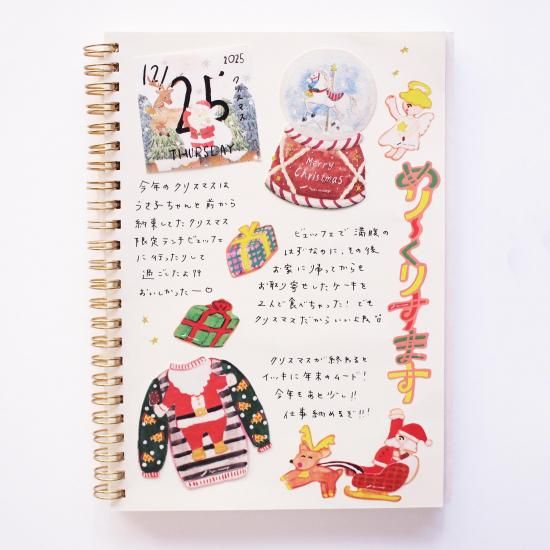 12/25
2025
クリスマス
THURSDAY
Merry
Christmas
めり〜くりすます
今年のクリスマスは
うさ子ちゃんと前から
約束してたクリスマス
限定ランチビュッフェ
に行ったりして
過ごしたよ??
おいしかったー
ビュッフェで満腹の
はずなのに、その後
お家に帰ってからも
お取り寄せしたケーキを
2人で食べちゃった!でも
クリスマスだからいいよね
クリスマスが終わると
イッキに年末のムード!
今年もあと少し!!
仕事納めるぞ!!!